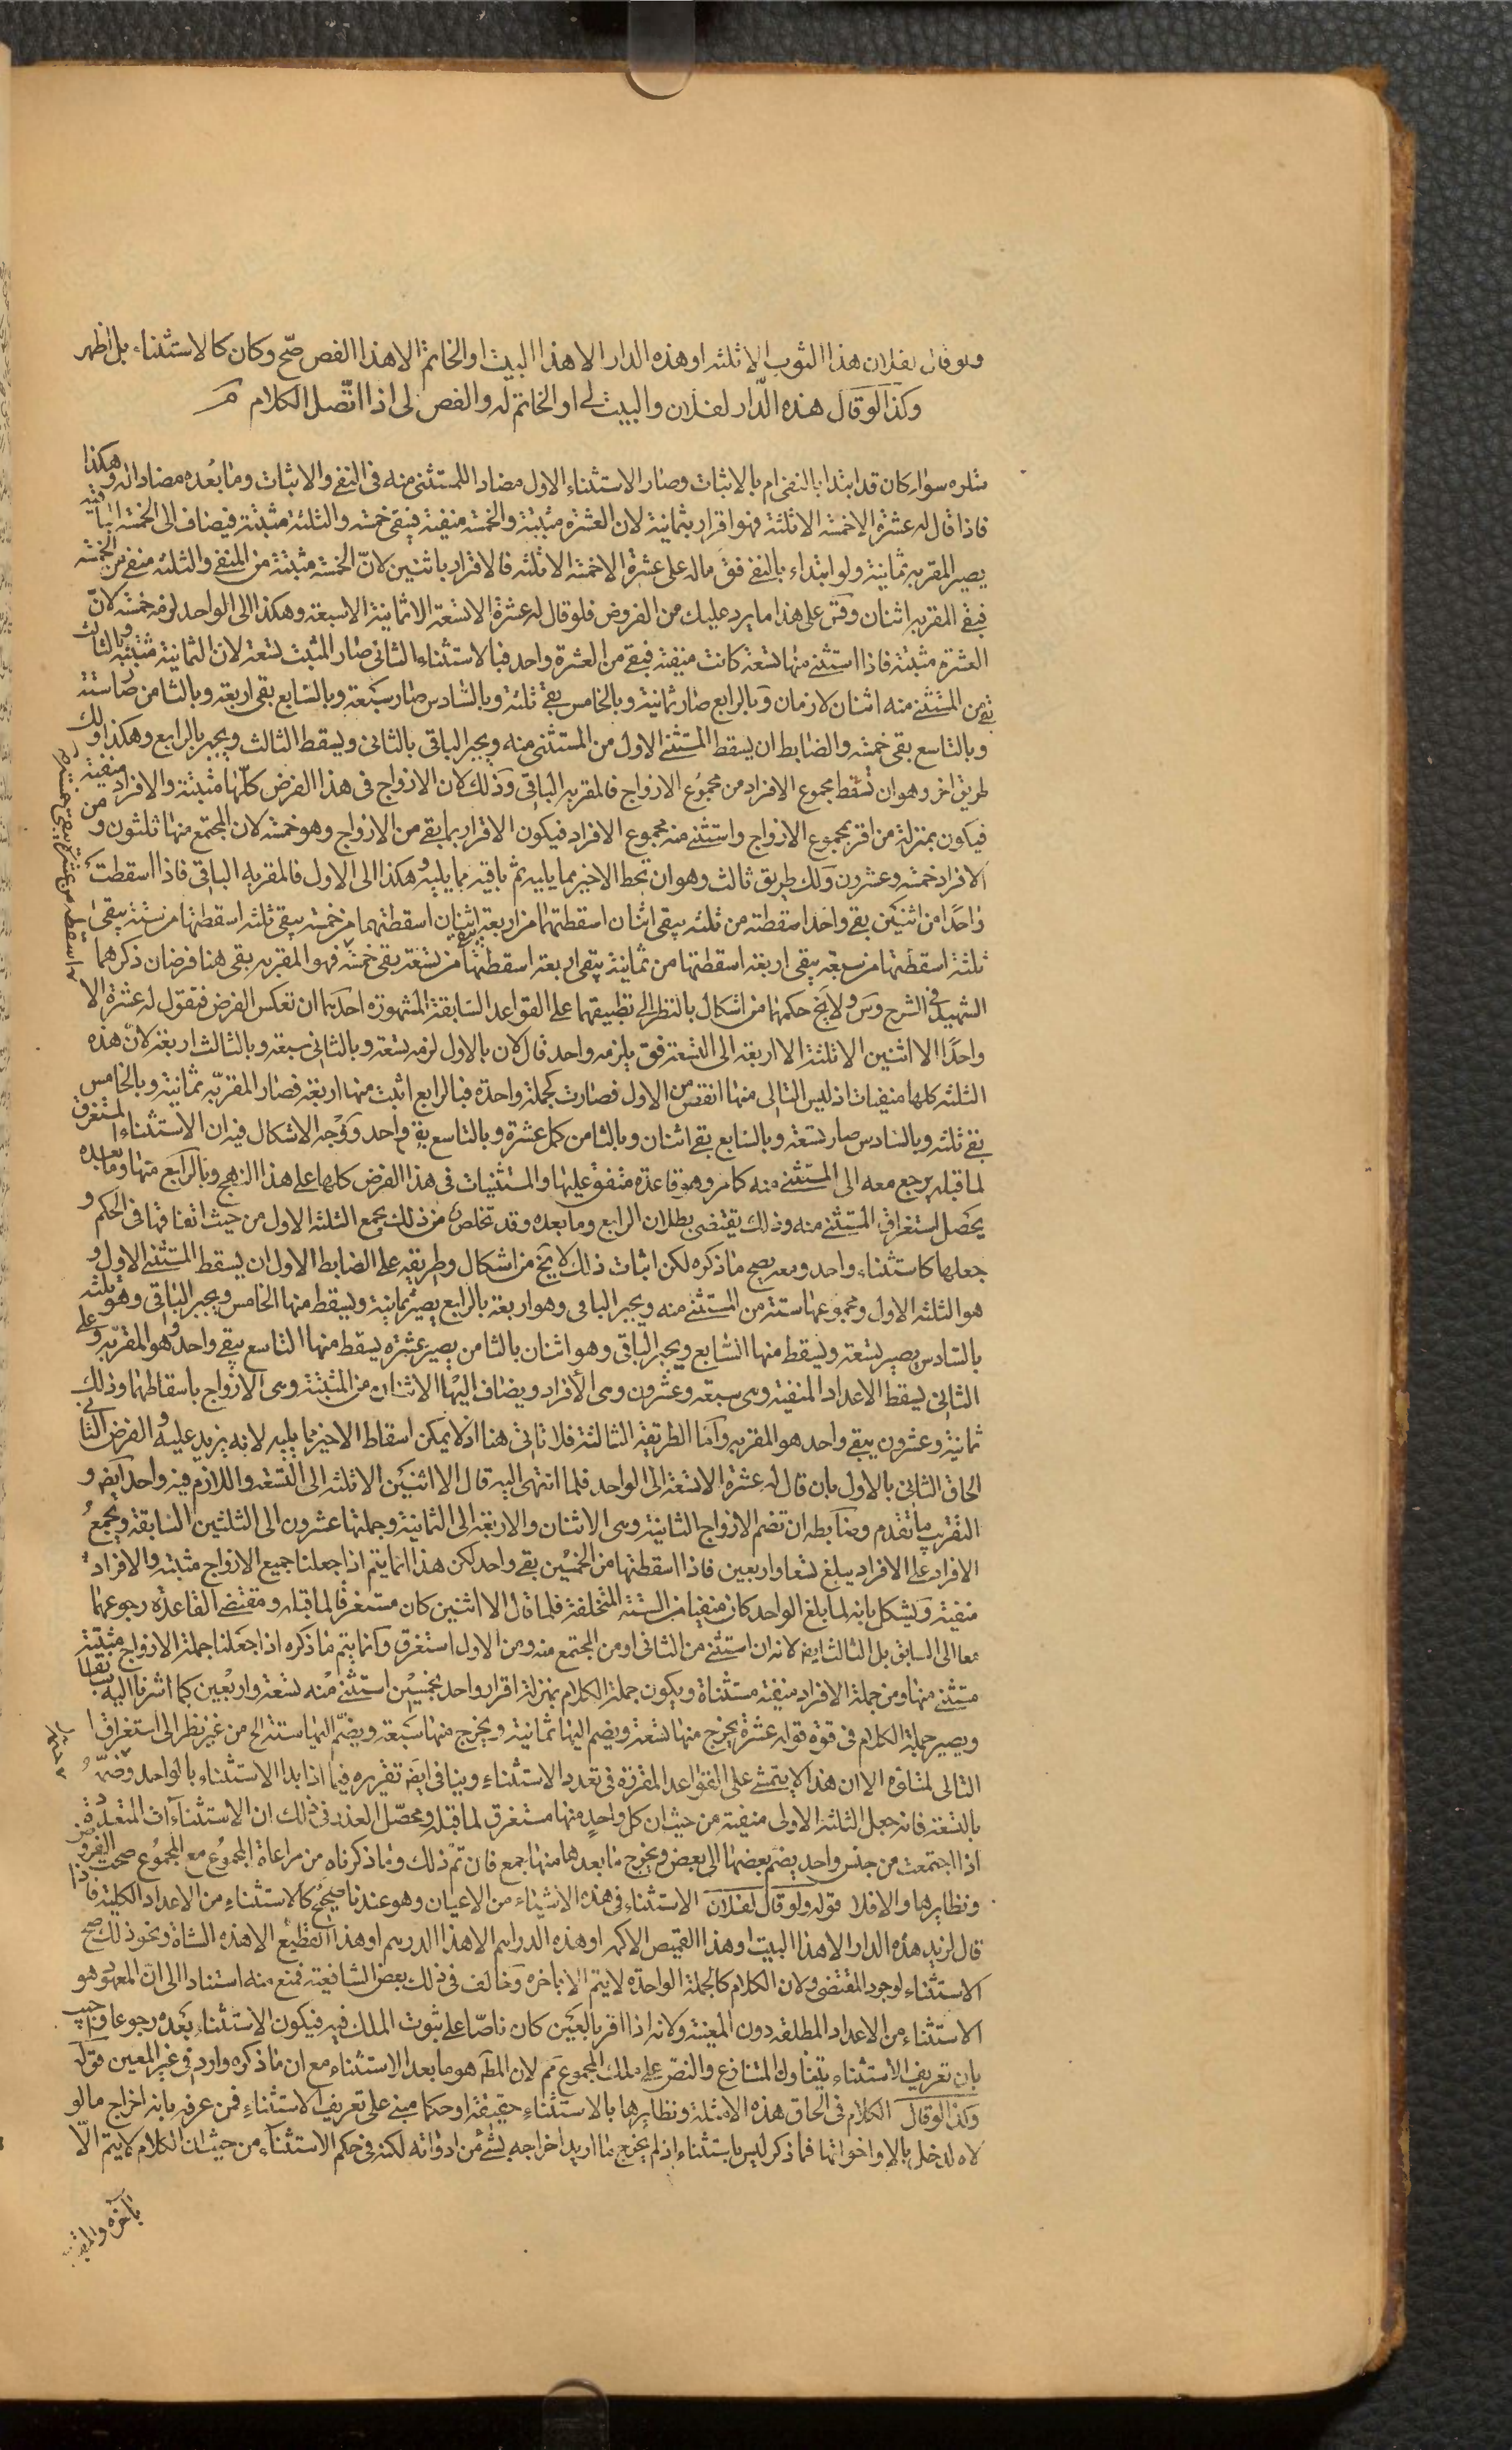 ولو قال لفلان هذا الثوب الا ثلثه او هذه الدار الا هذا البيت او الخاتم الا هذا الفص صح وكان كالاستثناء بل اظهر
وكذا لو قال هذه الدار لفلان والبيت لى او الخاتم له والفص لى اذا اتصل الكلام
سواء كان قد ابتدا بالنفى ام بالاثبات وصار الاستثناء الاول مضادا للمستثنى منه فى النفى والاثبات وما بعده مضادا له وهكذا
فاذا قال له عشرة الا خمسة الا ثلثة فهو اقرار بثمانية لان العشرة مثبتة والخمسة منفية فيبقى خمسة والثلثة مثبتة فيضاف الى الخمسة الباقية
يصير المقر به ثمانية ولو ابتداء بالنفى فق ماله على عشرة الا خمسة الا ثلثة فالاقرار باثنين لان الخمسة مثبتة من المنفى والثلثة منفى من الخمسة
فبقى المقر به اثنان وقس على هذا ما يرد عليك من الفروض فلو قال له عشرة الا تسعة الا ثمانية الا سبعة وهكذا الى الواحد لزمه خمسة لان
العشرة مثبتة فاذا استثنى منها تسعة كانت منفية فبقى من العشرة واحد فبالاستثناء الثانى صار المثبت تسعة لان الثمانية مثبتة وبالثالث
بقى من المستثنى منه اثنان لازمان وبالرابع صار ثمانية وبالخامس بقى ثلثة وبالسادس صار سبعة وبالسابع بقى اربعة وبالثامن صار ستة
وبالتاسع بقى خمسة والضابط ان يسقط المستثنى الاول من المستثنى منه ويجبر الباقى بالثانى ويسقط الثالث ويجبر بالرابع وهكذا ولك
طريق اخر وهو ان تسقط مجموع الافراد من مجموع الازواج فالمقر به الباقى وذلك لان الازواج فى هذا الفرض كلها مثبتة والافراد منفية
فيكون بمنزلة من اقر بمجموع الازواج واستثنى منه مجموع الافراد فيكون الاقرار بما بقى من الازواج وهو خمسة لان المجتمع منها ثلثون ومن
الافراد خمسة وعشرون ولك طريق ثالث وهو ان تحط الاخير مما يليه ثم باقيه مما يليه وهكذا الى الاول فالمقر به الباقى فاذا اسقطت
واحدا من اثنين بقى واحد اسقطته من ثلثه يبقى اثنان اسقطتهما من اربعة يبقى اثنان اسقطتهما من خمسة يبقى ثلثه اسقطتها من ستة يبقى
ثلثة اسقطتها من سبعة يبقى اربعة اسقطتها من ثمانية يبقى اربعة اسقطتها من تسعة بقى خمسة فهو المقر به بقى هنا فرضان ذكرهما
الشهيد فى الشرح وس ولا يخ حكمهما من اشكال بالنظر الى تطبيقهما على القواعد السابقة المشهورة احديهما ان تعكس الفرض فتقول له عشرة الا
واحدا الا اثنين الا ثلثة الا اربعة الى التسعة فق يلزمه واحد قال لان بالاول لزمه تسعة وبالثانى سبعة وبالثالث اربعة لان هذه
الثلثه كلها منفيات اذ ليس التالى منها انقص من الاول فصارت كجملة واحدة فبالرابع اثبت منها اربعة فصار المقر به ثمانية وبالخامس
بقى ثلثه وبالسادس صار تسعة وبالسابع بقى اثنان وبالثامن كمل عشرة وبالتاسع بقى واحد ووجه الاشكال فيه ان الاستثناء المستغرق
لما قبله يرجع معه الى المستثنى منه كما مر وهو قاعدة متفق عليها والمستثنيات فى هذا الفرض كلها على هذا النهج وبالرابع منها وما بعده
يحصل استغراق المستثنى منه وذلك يقتضى بطلان الرابع وما بعده وقد تخلص من ذلك بجمع الثلثة الاول من حيث اتفاقها فى الحكم و
جعلها كاستثناء واحد ومعه يصح ما ذكره لكن اثبات ذلك لا يخ من اشكال وطريقه على الضابط الاول ان يسقط المستثنى الاول و
هو الثلثة الاول ومجموعها ستة من المستثنى منه ويجبر الباقى وهو اربعة بالرابع يصير ثمانية ويسقط منها الخامس ويجبر الباقى وهو ثلثه
بالسادس يصير تسعة ويسقط منها السابع ويجبر الباقى وهو اثنان بالثامن يصير عشرة يسقط منها التاسع يبقى واحد وهو المقر به وعلى
الثانى ليسقط الاعداد المنفية وهى سبعة وعشرون وهى الافراد ويضاف اليها الاثنان من المثبتة وهى الازواج باسقاطهما وذلك
ثمانية وعشرون يبقى واحد هو المقر به واما الطريقة الثالثة فلا تاتى هنا اذ لا يمكن اسقاط الاخير مما يليه لانه يزيد عليه والفرض الثانى
الحاق الثانى بالاول بان قال له عشرة الا تسعة الى الواحد فلما انتهى اليه قال الا اثنين الا ثلثه الى التسعة واللازم فيه واحد ايضا و
التقريب ما تقدم وضابطه ان تضم الازواج الثانية وهى الاثنان والاربعة الى الثمانية وجملتها عشرون الى الثلثين السابقة وتجمع
الافراد على الافراد يبلغ تسعا واربعين فاذا اسقطتها من الخمسين بقى واحد لكن هذا انما يتم اذا جعلنا جميع الازواج مثبتة والافراد
منفية ويشكل بانه لما بلغ الواحد كان منفيا من الستة المتخلفة فلما قال الا اثنين كان مستغرقا لما قبله ومقتضى القاعدة رجوعهما
معا الى السابق بل الثالث ايضا لانه ان استثنى من الثانى او من المجتمع منه ومن الاول استغرق وانما يتم ما ذكره اذا جعلنا جملة الازواج مثبتة
مستثنى منها ومن جملة الافراد منفية مستثناة ويكون جملة الكلام بمنزلة اقرار واحد بخمسين استثنى منه تسعة واربعين كما اشرنا اليه سابقا
ويصير جملة الكلام فى قوة قوله عشرة يخرج منها تسعة ويضم اليها ثمانية ويخرج منها سبعة ويضم اليها ستة الخ من غير نظر الى استغراق
التالى لمتلوه الا ان هذا لا يتمشى على القواعد المقررة فى تعدد الاستثناء وينافى ايضا تقريره فيما اذا بدا الاستثناء بالواحد وختمه
بالتسعة فانه جعل الثلثه الاولى منفية من حيث ان كل واحد منها مستغرق لما قبله ومحصل العذر فى ذلك ان الاستثناآت المتعددة
اذا اجتمعت من جنس واحد يضم بعضها الى بعض ويخرج ما بعدها منها جمع فان تم ذلك وما ذكرناه من مراعاة المجموع مع المجموع صحت الفروض
ونظايرها والا فلا قوله ولو قال لفلان الاستثناء فى هذه الاشياء من الاعيان وهو عندنا صحيح كالاستثناء من الاعداد الكلية فاذا
قال لزيد هذه الدار الا هذا البيت او هذا القميص الا كمه او هذه الدراهم الا هذا الدرهم او هذا القطيع الا هذه الشاة ونحو ذلك صح
الاستثناء لوجود المقتضى ولان الكلام كالجملة الواحدة لا يتم الا باخره وخالف فى ذلك بعض الشافعية فمنع منه استنادا الى ان المعهود هو
الاستثناء من الاعداد المطلقة دون المعينة ولانه اذا اقر بالعين كان ناصا على ثبوت الملك فيه فيكون الاستثناء بعده رجوعا واجيب
بان تعريف الاستثناء يتناول المتنازع والنص على ملك المجموع مم لان المط هو ما بعد الاستثناء مع ان ما ذكره وارد فى غير المعين قوله
وكذا لو قال الكلام فى الحاق هذه الامثلة ونظايرها بالاستثناء حقيقة او حكما مبنى على تعريف الاستثناء فمن عرفه بانه اخراج ما لو
لاه لدخل بالا واخواتها فما ذكر ليس باستثناء اذ لم يخرج ما اريد اخراجه بشئ من ادواته لكنه فى حكم الاستثناء من حيث ان الكلام لا يتم الا
باخره